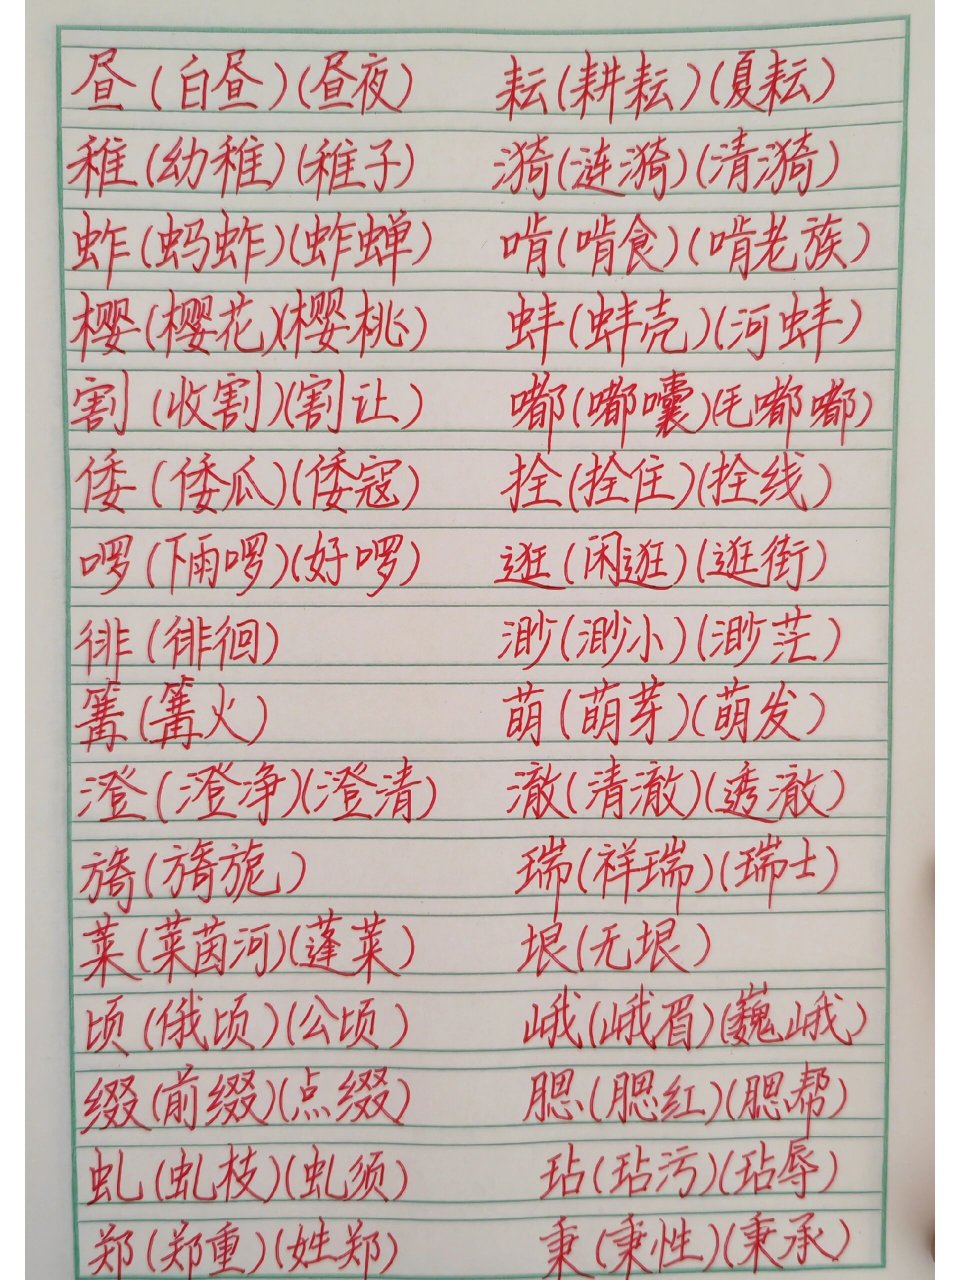 昼(白昼)(昼夜) 耘(耕耘)(夏耘)
稚(幼稚)(稚子) 漪(涟漪)(清漪)
蚱(蚂蚱)(蚱蝉) 啃(啃食)(啃老族)
樱(樱花)(樱桃) 蚌(蚌壳)(河蚌)
割(收割)(割让) 嘟(嘟囔)(毛嘟嘟)
倭(倭瓜)(倭寇) 拴(拴住)(拴线)
啰(下雨啰)(好啰) 逛(闲逛)(逛街)
徘(徘徊) 渺(渺小)(渺茫)
篝(篝火) 萌(萌芽)(萌发)
澄(澄净)(澄清) 澈(清澈)(透澈)
旖(旖旎) 瑞(祥瑞)(瑞士)
莱(莱茵河)(蓬莱) 垠(无垠)
顷(俄顷)(公顷) 峨(峨眉)(巍峨)
缀(前缀)(点缀) 腮(腮红)(腮帮)
虬(虬枝)(虬须) 玷(玷污)(玷辱)
郑(郑重)(姓郑) 秉(秉性)(秉承)